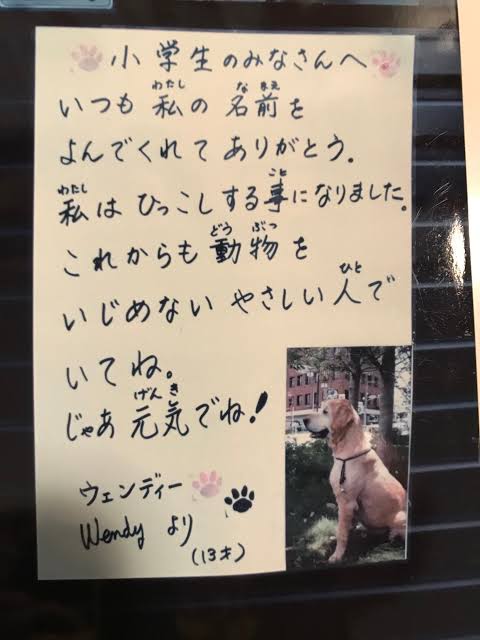 小学生のみなさんへ
いつも私の名前を
わたし
な まえ
よんでくれてありがとう。
私はひっこしする事になりました。
わたし
こと
これからも動物を
どう ぶつ
いじめないやさしい人で
ひと
いてね。
じゃあ元気でね!
げん き
ウェンディー
Wendy より
(13才)